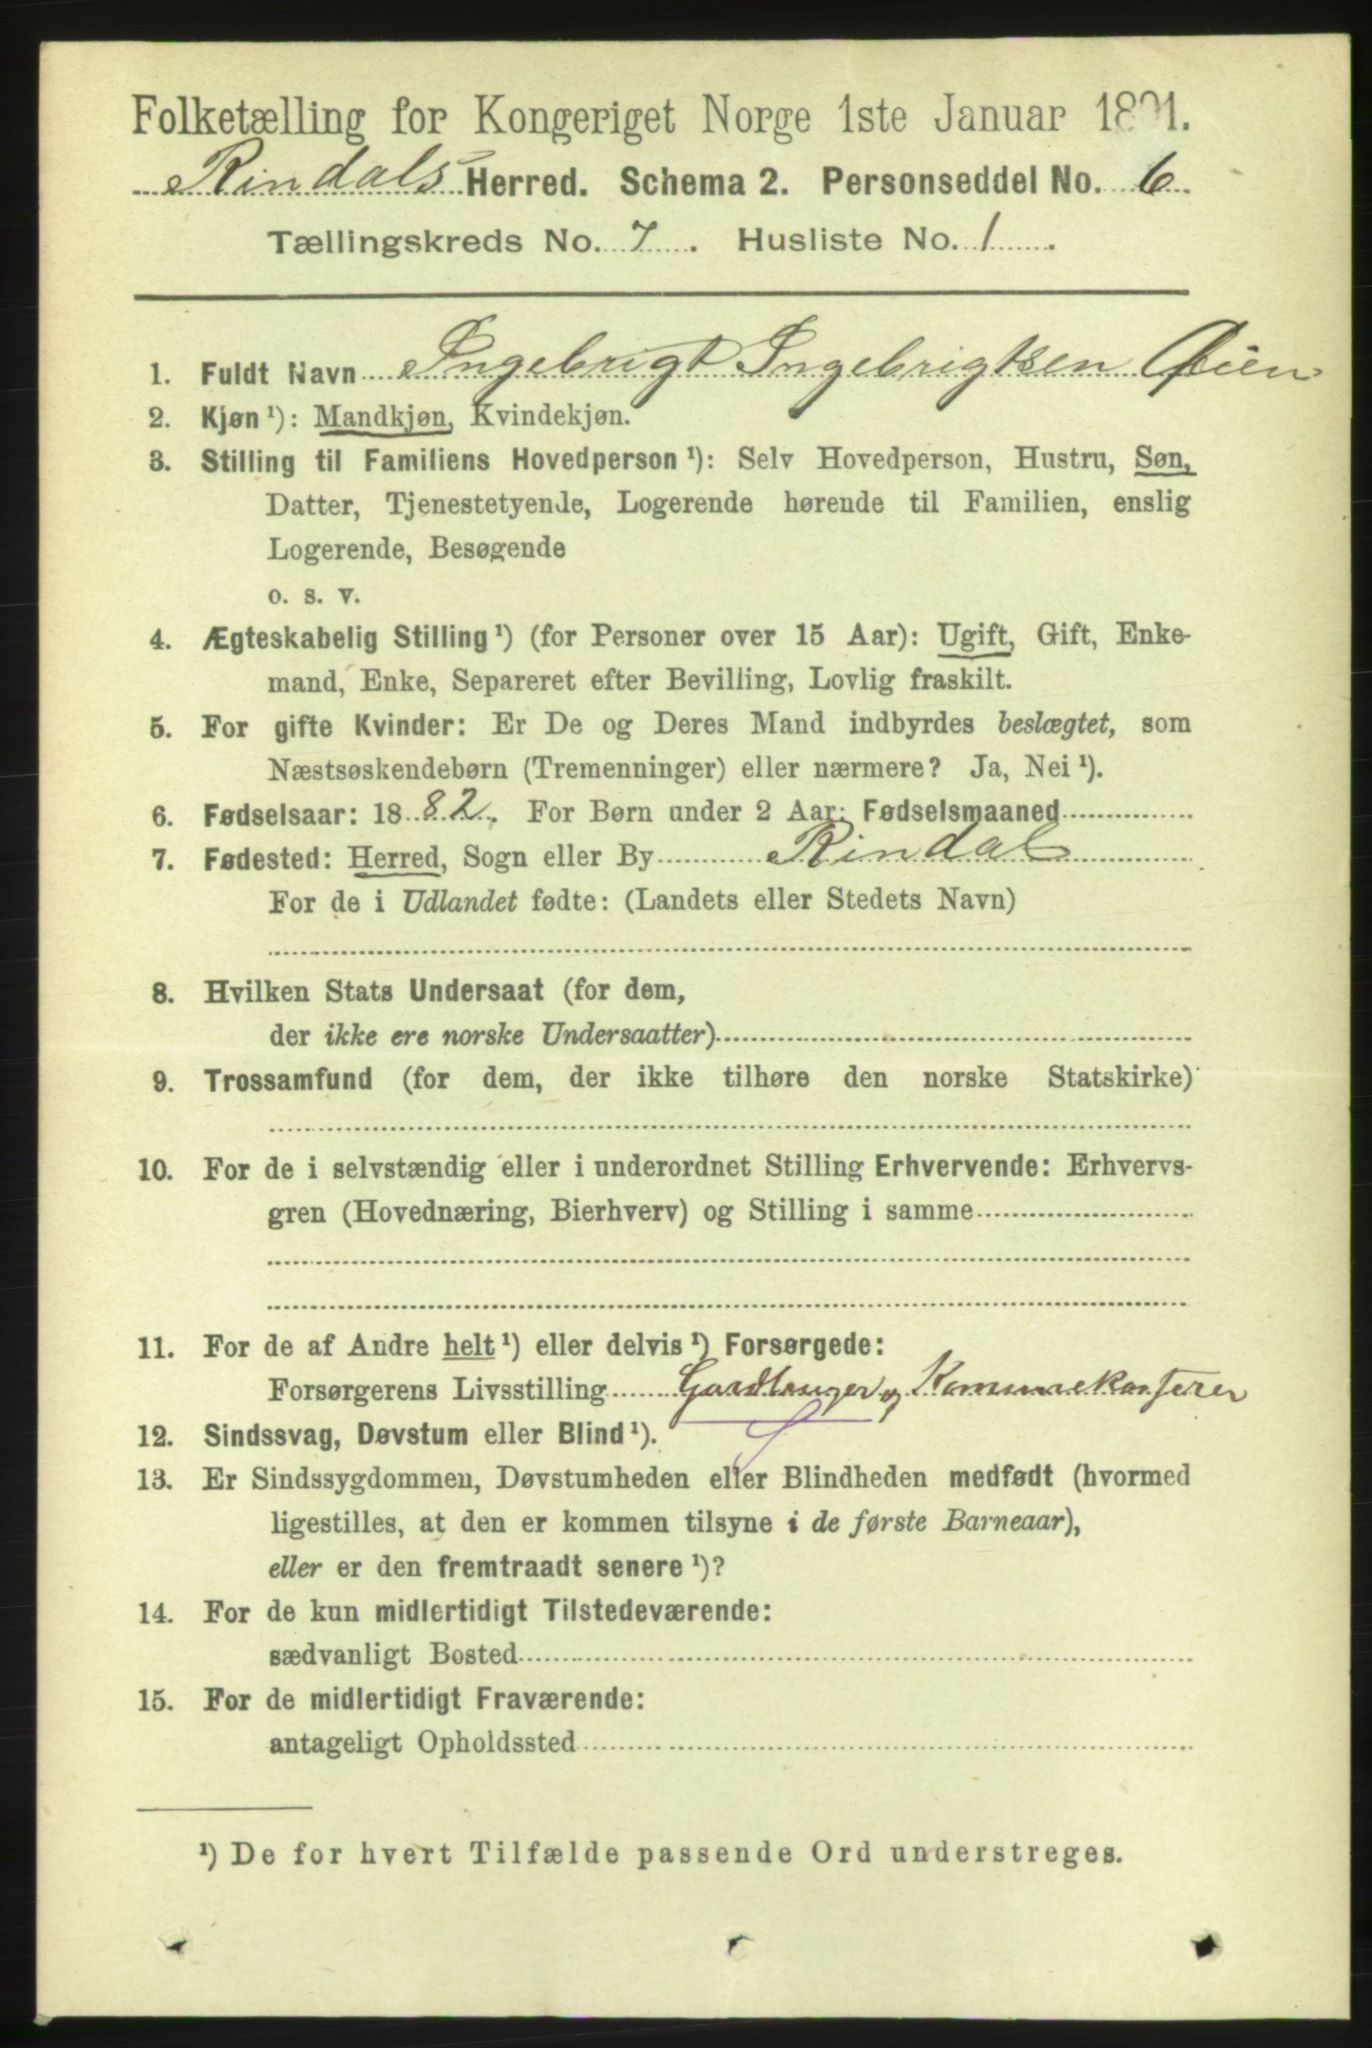 Folketælling for Kongeriget Norge 1ste Januar 1891.
Rindals Herred. Schema 2. Personseddel No. 6
Tællingskreds No. 7. Husliste No. 1.
1. Fuldt Navn Ingebrigt Ingebrigtsen Øien
2. Kjøn¹): Mandkjøn, Kvindekjøn.
3. Stilling til Familiens Hovedperson¹): Selv Hovedperson, Hustru, Søn,
Datter, Tjenestetyende, Logerende hørende til Familien, enslig
Logerende, Besøgende
o. s. v.
4. Ægteskabelig Stilling¹) (for Personer over 15 Aar): Ugift, Gift, Enke-
mand, Enke, Separeret efter Bevilling, Lovlig fraskilt.
5. For gifte Kvinder: Er De og Deres Mand indbyrdes beslægtet, som
Næstsøskendebørn (Tremenninger) eller nærmere? Ja, Nei¹).
6. Fødselsaar: 1882. For Børn under 2 Aar: Fødselsmaaned
7. Fødested: Herred, Sogn eller By Rindal
For de i Udlandet fødte: (Landets eller Stedets Navn)
8. Hvilken Stats Undersaat (for dem,
der ikke ere norske Undersaatter)
9. Trossamfund (for dem, der ikke tilhøre den norske Statskirke)
10. For de i selvstændig eller i underordnet Stilling Erhvervende: Erhvervs-
gren (Hovednæring, Bierhverv) og Stilling i samme
11. For de af Andre helt¹) eller delvis¹) Forsørgede:
Forsørgerens Livsstilling Gardbruger og Kommunekasserer
12. Sindssvag, Døvstum eller Blind¹).
13. Er Sindssygdommen, Døvstumheden eller Blindheden medfødt (hvormed
ligestilles, at den er kommen tilsyne i de første Barneaar),
eller er den fremtraadt senere¹)?
14. For de kun midlertidigt Tilstedeværende:
sædvanligt Bosted
15. For de midlertidigt Fraværende:
antageligt Opholdssted
¹) De for hvert Tilfælde passende Ord understreges.